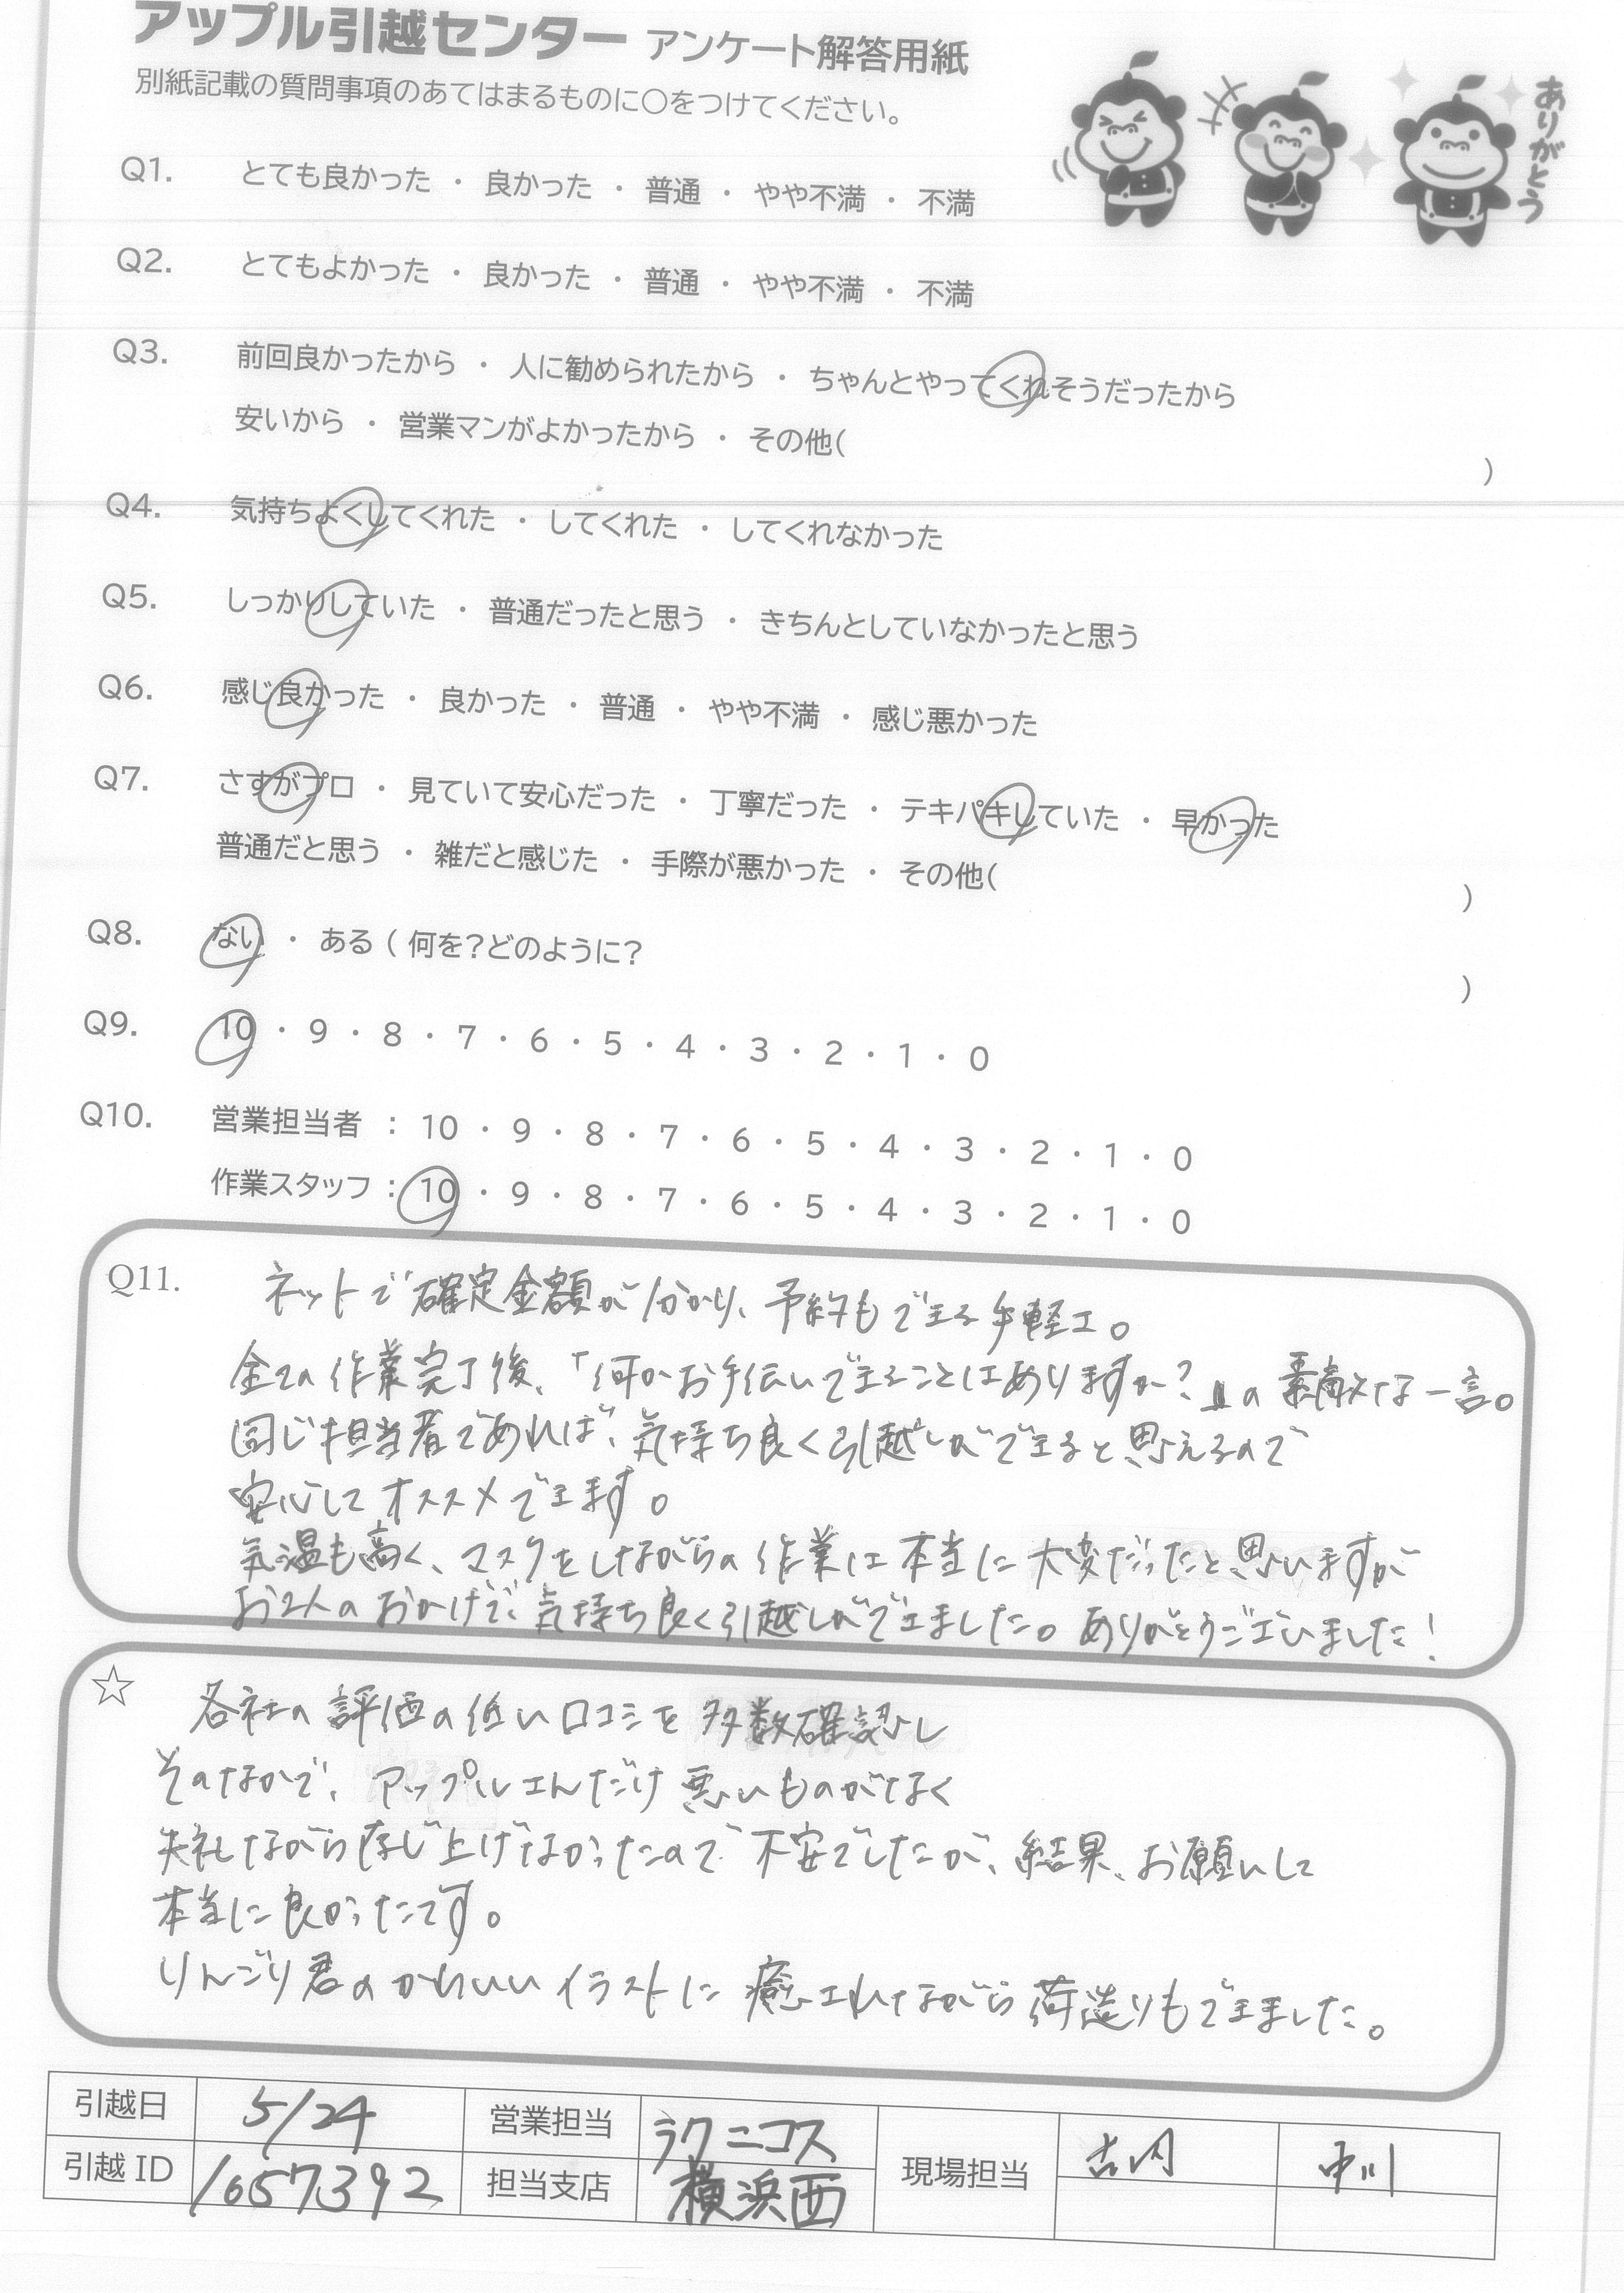 アップル引越センター アンケート解答用紙
別紙記載の質問事項のあてはまるものに○をつけてください。
ありがとう
Q1. とても良かった ・ 良かった ・ 普通 ・ やや不満 ・ 不満
Q2. とてもよかった ・ 良かった ・ 普通 ・ やや不満 ・ 不満
Q3. 前回良かったから ・ 人に勧められたから ・ ちゃんとやってくれそうだったから
安いから ・ 営業マンがよかったから ・ その他( )
Q4. 気持ちよくしてくれた ・ してくれた ・ してくれなかった
Q5. しっかりしていた ・ 普通だったと思う ・ きちんとしていなかったと思う
Q6. 感じ良かった ・ 良かった ・ 普通 ・ やや不満 ・ 感じ悪かった
Q7. さすがプロ ・ 見ていて安心だった ・ 丁寧だった ・ テキパキしていた ・ 早かった
普通だと思う ・ 雑だと感じた ・ 手際が悪かった ・ その他( )
Q8. ない ・ ある ( 何を?どのように? )
Q9. 10 ・ 9 ・ 8 ・ 7 ・ 6 ・ 5 ・ 4 ・ 3 ・ 2 ・ 1 ・ 0
Q10. 営業担当者 : 10 ・ 9 ・ 8 ・ 7 ・ 6 ・ 5 ・ 4 ・ 3 ・ 2 ・ 1 ・ 0
作業スタッフ : 10 ・ 9 ・ 8 ・ 7 ・ 6 ・ 5 ・ 4 ・ 3 ・ 2 ・ 1 ・ 0
Q11. ネットで確定金額が分かり、予約もできる手軽さ。
全ての作業完了後、「何かお手伝いできることはありますか?」の素敵な一言。
同じ担当者であれば、気持ち良く引越しができると思えるので
安心してオススメできます。
気温も高く、マスクをしながらの作業は本当に大変だったと思いますが
お2人のおかげで、気持ち良く引越しができました。ありがとうございました!
☆ 各社の評価の低い口コミを多数確認し
そのなかで、アップルさんだけ悪いものがなく
失礼ながら存じ上げなかったので不安でしたが、結果、お願いして
本当に良かったです。
りんごり君のかわいいイラストに癒されながら荷造りもできました。
引越日 5/24 営業担当 ラクニコス 現場担当 古内 中川
引越 ID 1657392 担当支店 横浜西